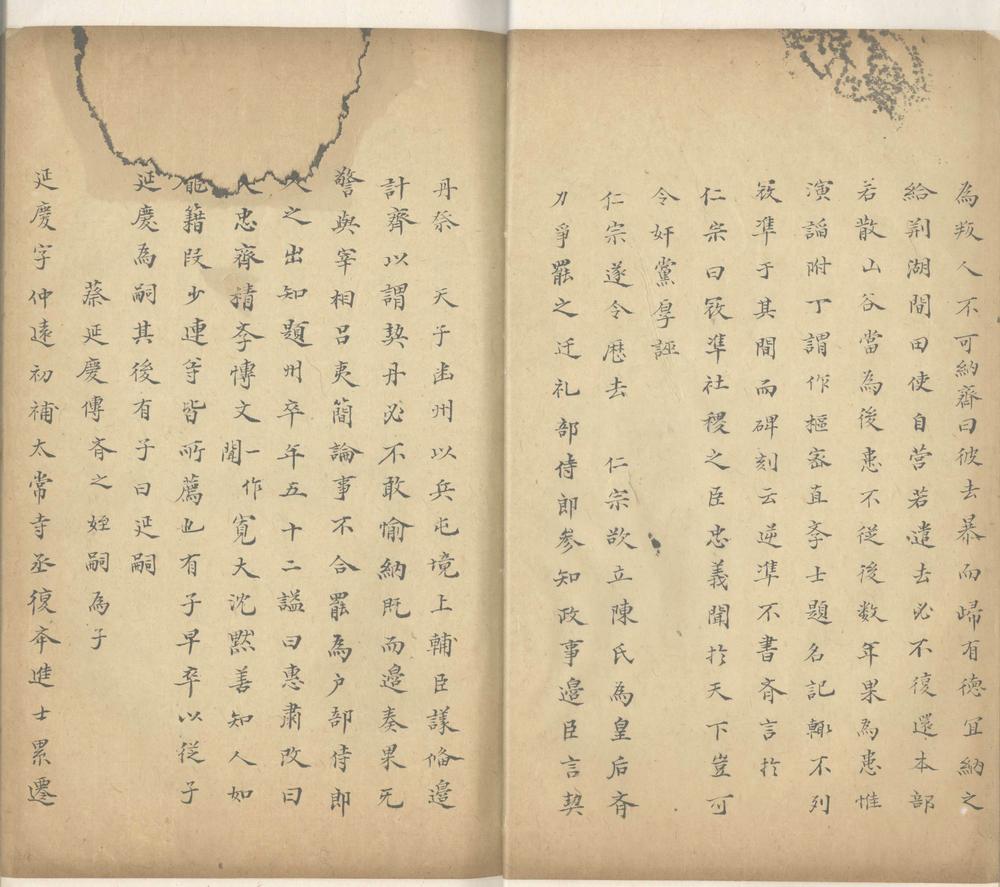 為叛人不可納齊曰彼去暴而歸有德冝納之
給荆湖間田使自营若遣去必不復還本部
若散山谷當為後患不従後数年果為患惟
演謟附丁謂作樞宻直孝士題名記輙不列
㓂凖于其間而碑刻云逆凖不書斉言扵
仁宗曰㓂凖社稷之臣忠義聞扵天下豈可
令奸黨厚誣
仁宗遂令磨去 仁宗欲立陳氏為皇后斉
力爭罷之迁礼部侍郎参知政事邉臣言契
丹祭 天子幽州以兵屯境上輔臣議俻邉
計齊以謂契丹必不敢愉納既而邉奏果无
警與宰相吕夷簡論事不合罷為户部侍郎
之出知題州卒年五十二謚曰惠肅改曰
忠齊精李愽文一作聞寛大沈黙善知人如
龎籍叚少連等皆所薦也有子早卒以従子
延慶為嗣其後有子曰延嗣
蔡延慶傳斉之姪嗣為子
延慶字仲遠初補太常寺丞復本進士累遷